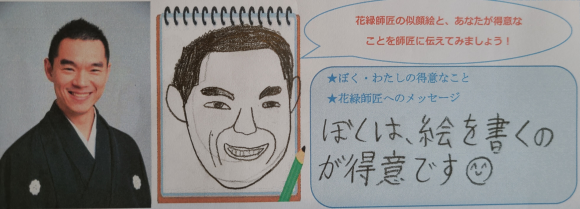 花緑師匠の似顔絵と、あなたが得意な
ことを師匠に伝えてみましょう！
★ぼく・わたしの得意なこと
★花緑師匠へのメッセージ
ぼくは、絵を書くの
が得意です